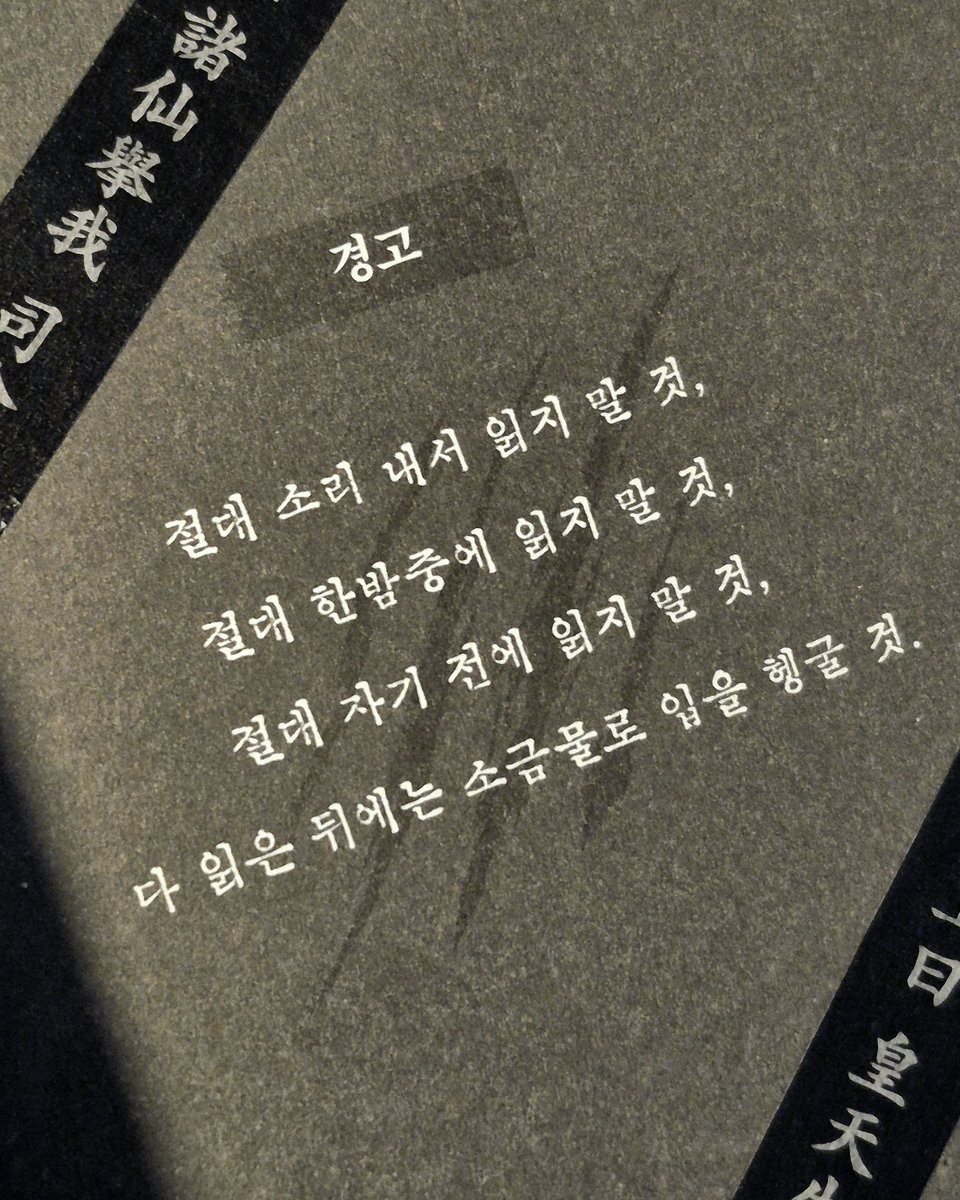 諸仙擧我
司
경고
절대 소리 내서 읽지 말 것,
절대 한밤중에 읽지 말 것,
절대 자기 전에 읽지 말 것,
다 읽은 뒤에는 소금물로 입을 헹굴 것.
曰 皇天